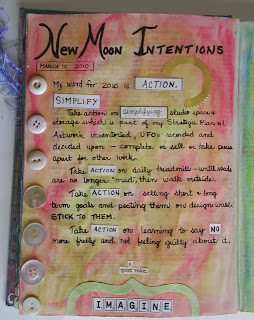 NEW MOON INTENTIONS
MARCH 15, 2010
My word for 2010 is ACTION.
SIMPLIFY
Take action on simplifying studio space &
storage which is part of my Strategic Plan &
Artwork inventoried, UFOs recorded and
decided upon - complete or sell or take pieces
apart for other work.
Take ACTION on daily treadmill - until roads
are no longer "mud", then walk outside.
Take ACTION on setting short & long
term goals and posting them on design wall.
STICK TO THEM.
Take ACTION on learning to say NO
more freely and not feeling guilty about it.
a
IMAGINE